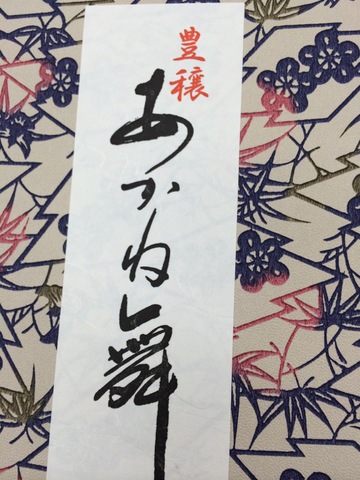 豊穣
あかね舞